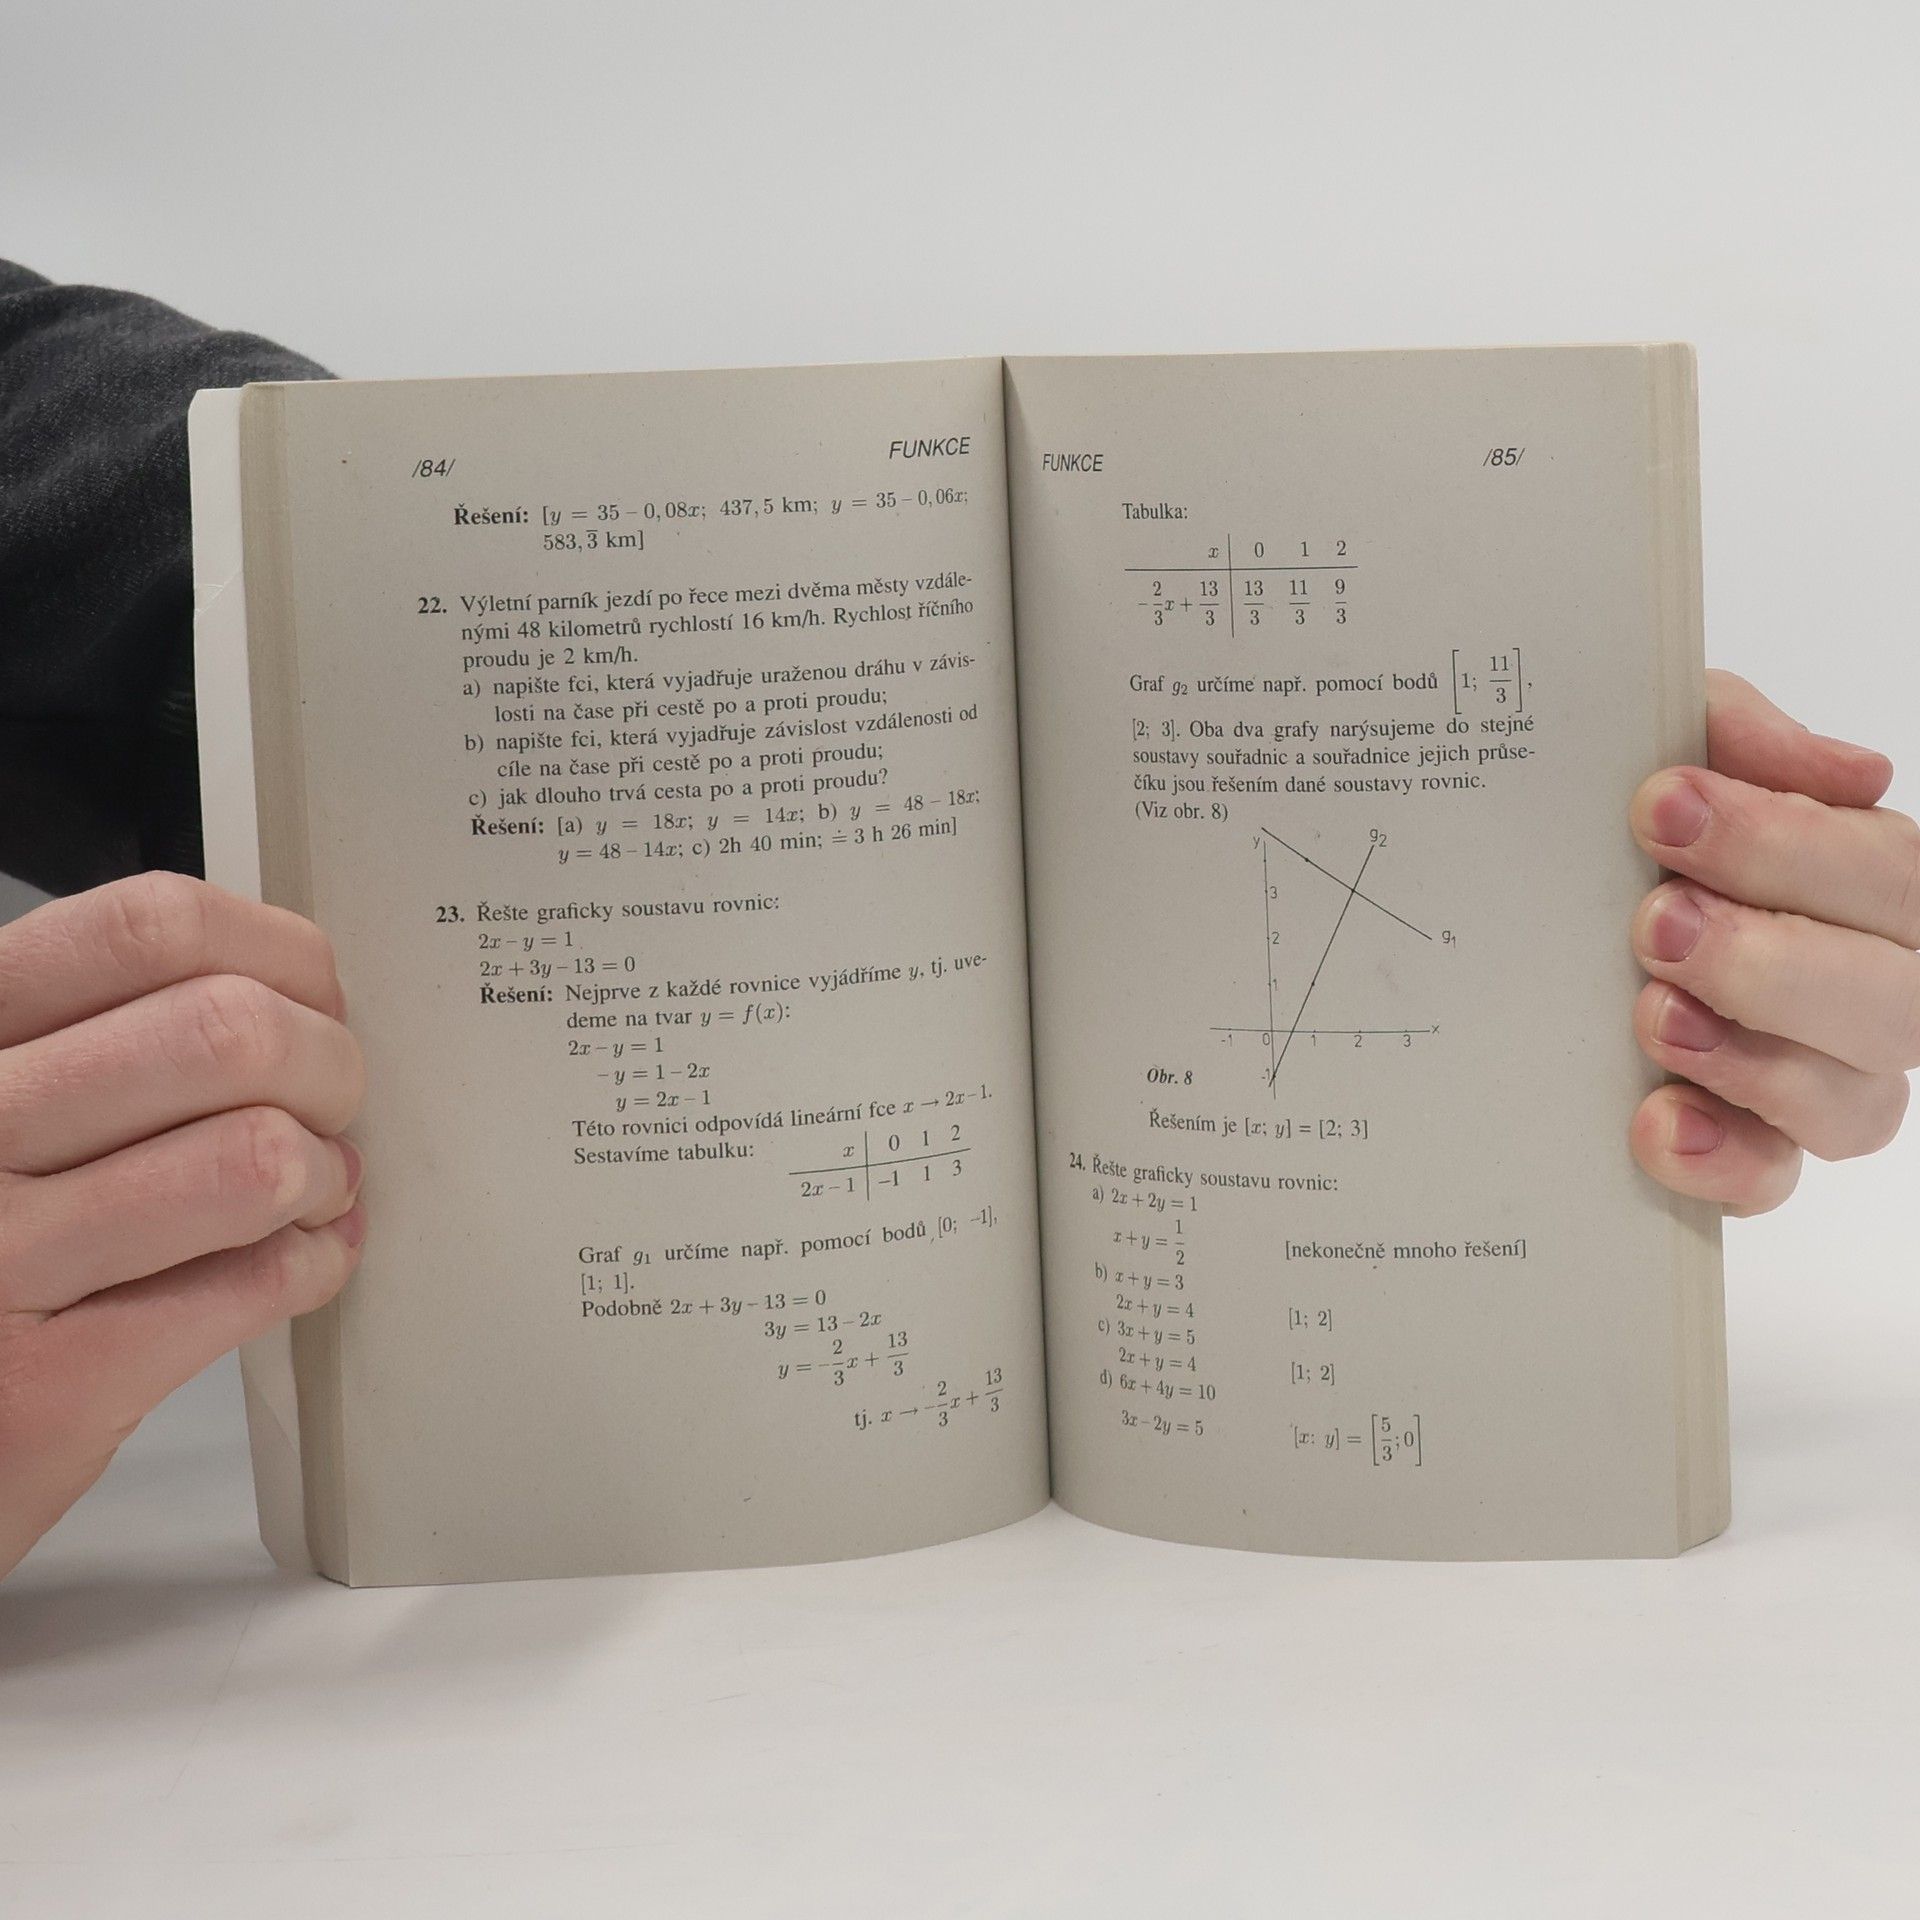 /84/ FUNKCE
Řešení: [y = 35 – 0,08x; 437,5 km; y = 35 – 0,06x;
583,3̅ km]
22. Výletní parník jezdí po řece mezi dvěma městy vzdále-
nými 48 kilometrů rychlostí 16 km/h. Rychlost říčního
proudu je 2 km/h.
a) napište fci, která vyjadřuje uraženou dráhu v závis-
losti na čase při cestě po a proti proudu;
b) napište fci, která vyjadřuje závislost vzdálenosti od
cíle na čase při cestě po a proti proudu;
c) jak dlouho trvá cesta po a proti proudu?
Řešení: [a) y = 18x; y = 14x; b) y = 48 – 18x;
y = 48 – 14x; c) 2h 40 min; ≐ 3 h 26 min]
23. Řešte graficky soustavu rovnic:
2x – y = 1
2x + 3y – 13 = 0
Řešení: Nejprve z každé rovnice vyjádříme y, tj. uve-
deme na tvar y = f(x):
2x – y = 1
– y = 1 – 2x
y = 2x – 1
Této rovnici odpovídá lineární fce x → 2x – 1.
Sestavíme tabulku: x 0 1 2
2x – 1 –1 1 3
Graf g₁ určíme např. pomocí bodů [0; –1],
[1; 1].
Podobně 2x + 3y – 13 = 0
3y = 13 – 2x
y = –2/3x + 13/3
tj. x → –2/3x + 13/3
FUNKCE /85/
Tabulka:
x 0 1 2
–2/3x + 13/3 13/3 11/3 9/3
Graf g₂ určíme např. pomocí bodů [1; 11/3],
[2; 3]. Oba dva grafy narýsujeme do stejné
soustavy souřadnic a souřadnice jejich průse-
číku jsou řešením dané soustavy rovnic.
(Viz obr. 8)
y g₂
3
2 g₁
1
-1 0 1 2 3 x
-1
Obr. 8
Řešením je [x; y] = [2; 3]
24. Řešte graficky soustavu rovnic:
a) 2x + 2y = 1
x + y = 1/2 [nekonečně mnoho řešení]
b) x + y = 3
2x + y = 4 [1; 2]
c) 3x + y = 5
2x + y = 4 [1; 2]
d) 6x + 4y = 10
3x – 2y = 5 [x: y] = [5/3; 0]